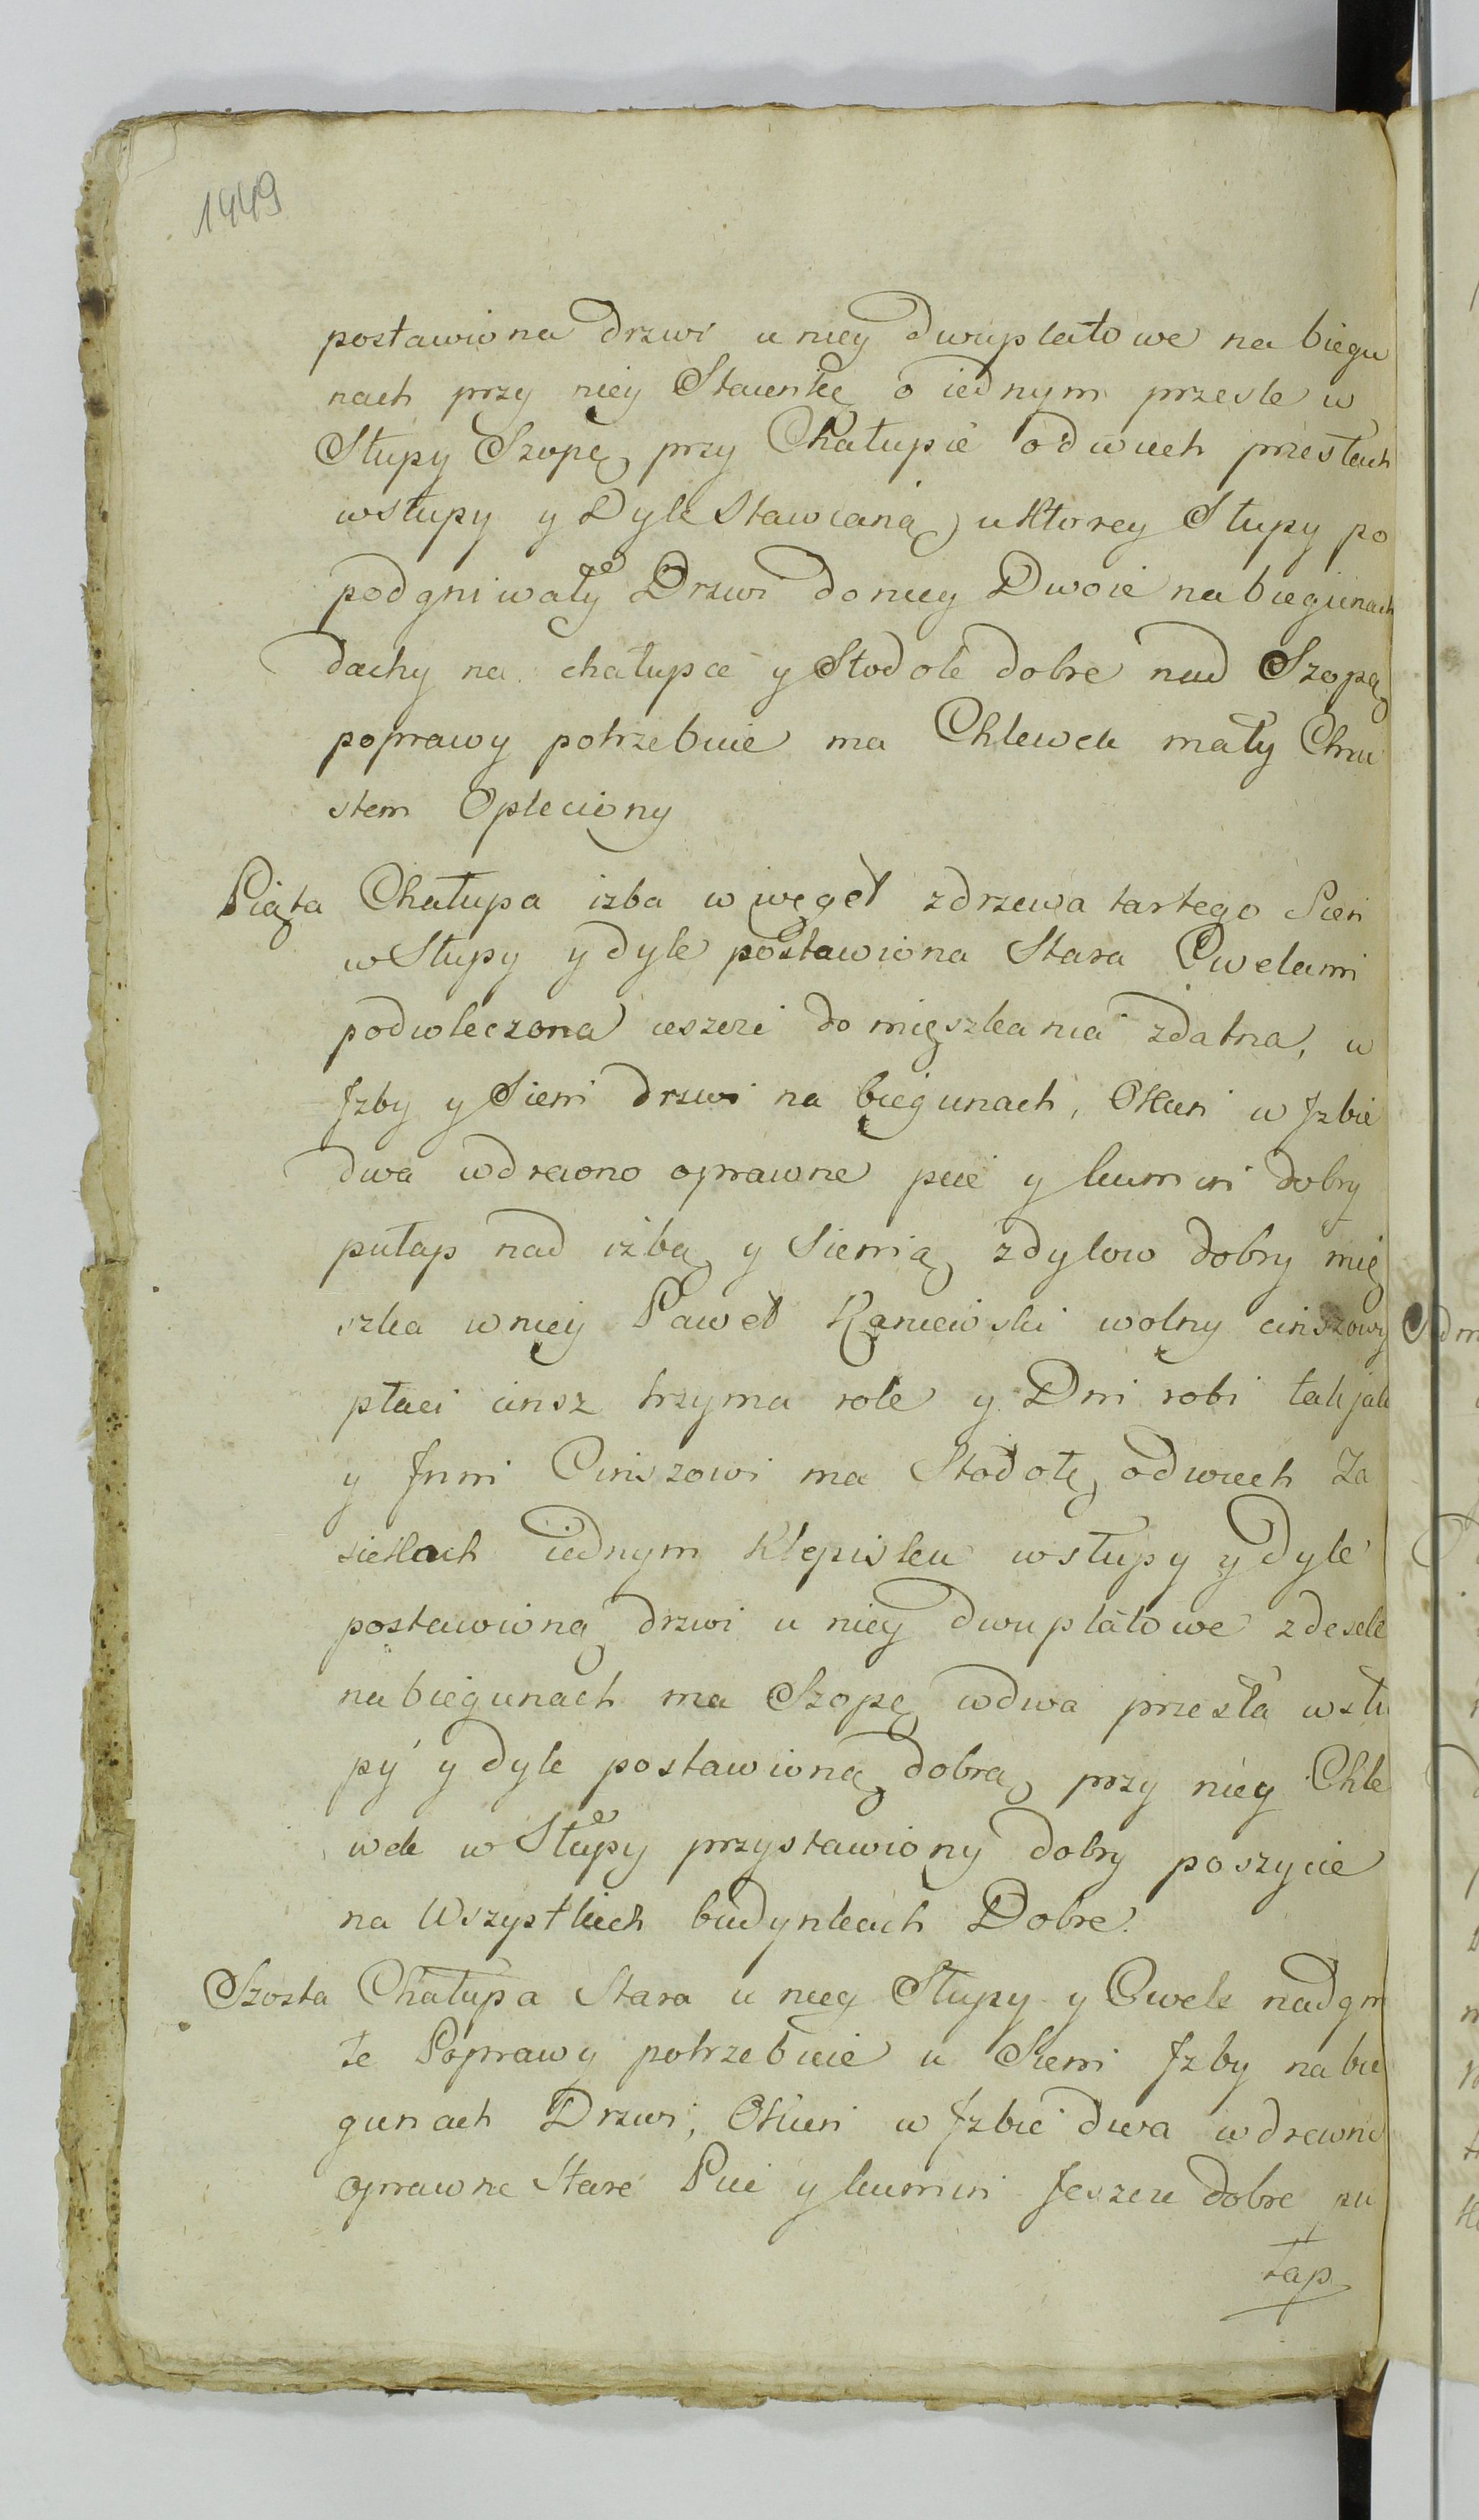 1449
postawiona drzwi u niey dwuplatowe na biegu
nach przy niey Staienkę o iednym przesle w
Słupy Szopę przy Chałupie o dwuch przesłach
w słupy y Dyle stawianą u Ktorey Słupy po
podgniwały Drzwi do niey Dwoie na biegunach
dachy na chałupce y Stodole dobre nad Szopą
poprawy potrzebuie ma Chlewek mały Chru
stem Opleciony
Piąta Chałupa izba w węgeł z drzewa tartego Sień
w Słupy y dyle postawiona Stara Cwelami
podwleczona ieszcze do mięszkania zdatna, u
Jzby y Sieni drzwi na biegunach, Okien w Jzbie
dwa w drewno oprawne piec y kumin dobry
pułap nad izbą y Sienią z dylow dobry mię
szka w niey Paweł Kaniewski wolny cinszowy
płaci cinsz trzyma role y Dni robi tak jak
y Jnni Cinszowi ma Stodołę o dwuch Za
siekach iednym Klepisku w słupy y dyle
postawioną drzwi u niey dwuplatowe z desek
na biegunach ma Szopę w dwa przesła w słu
py y dyle postawioną dobrą przy niey Chle
wek w Słupy przystawiony dobry poszycie
na Wszystkich budynkach Dobre.
Szosta Chałupa Stara u niey Słupy y Cwele nadgni
łe Poprawy potrzebuie u Sieni Jzby na bie
gunach Drzwi, Okien w Jzbie dwa w drewno
oprawne Stare Piec y kumin Jeszcze dobre pu
łap